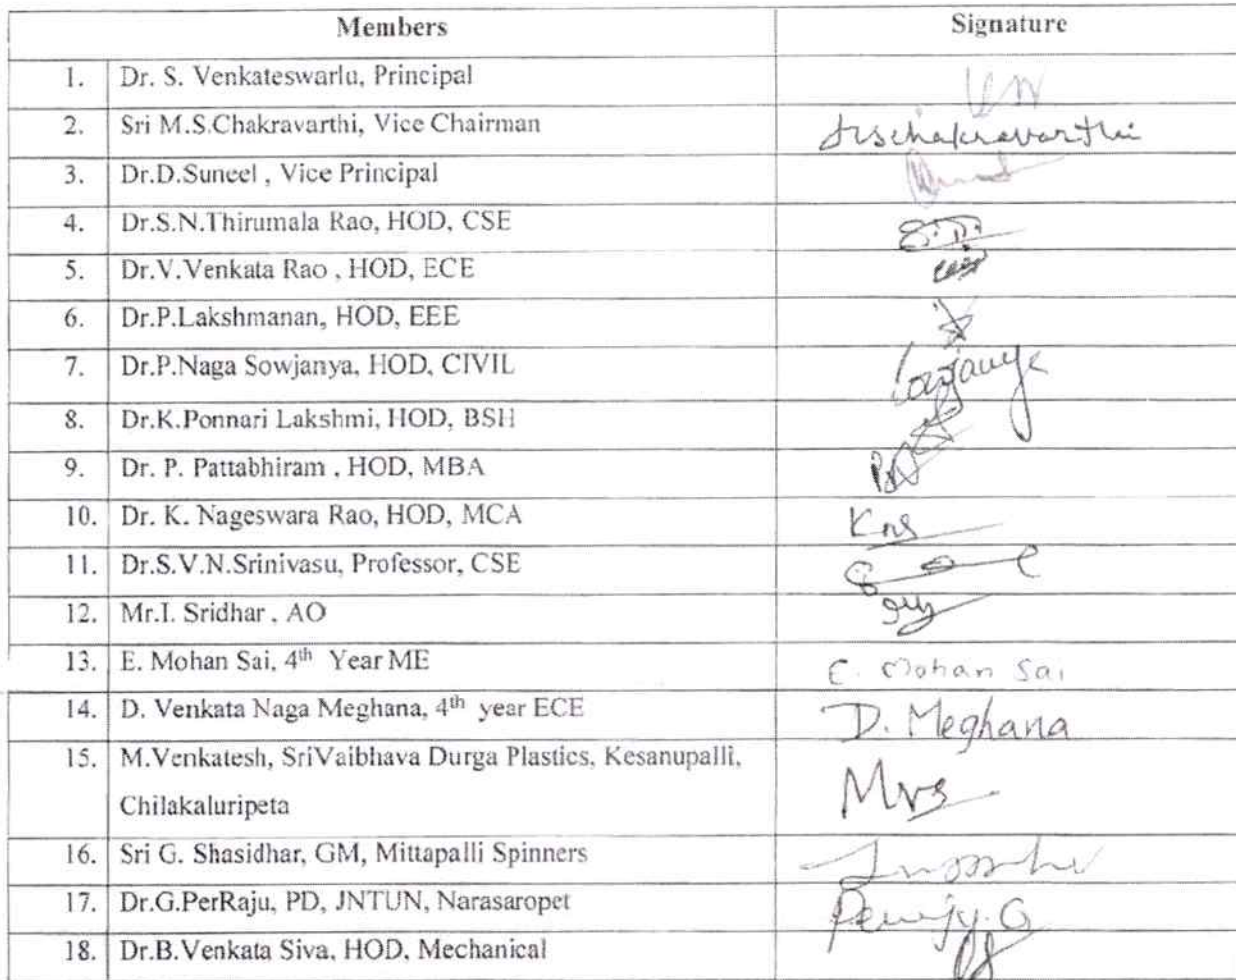 Members Signature
1. Dr. S. Venkateswarlu, Principal
2. Sri M.S.Chakravarthi, Vice Chairman
3. Dr.D.Suneel , Vice Principal
4. Dr.S.N.Thirumala Rao, HOD, CSE
5. Dr.V.Venkata Rao , HOD, ECE
6. Dr.P.Lakshmanan, HOD, EEE
7. Dr.P.Naga Sowjanya, HOD, CIVIL Sowjanya
8. Dr.K.Ponnari Lakshmi, HOD, BSH
9. Dr. P. Pattabhiram , HOD, MBA
10. Dr. K. Nageswara Rao, HOD, MCA
11. Dr.S.V.N.Srinivasu, Professor, CSE
12. Mr.I. Sridhar , AO
13. E. Mohan Sai, 4th Year ME E. Mohan Sai
14. D. Venkata Naga Meghana, 4th year ECE D. Meghana
15. M.Venkatesh, SriVaibhava Durga Plastics, Kesanupalli,
Chilakaluripeta
16. Sri G. Shasidhar, GM, Mittapalli Spinners
17. Dr.G.PerRaju, PD, JNTUN, Narasaropet
18. Dr.B.Venkata Siva, HOD, Mechanical